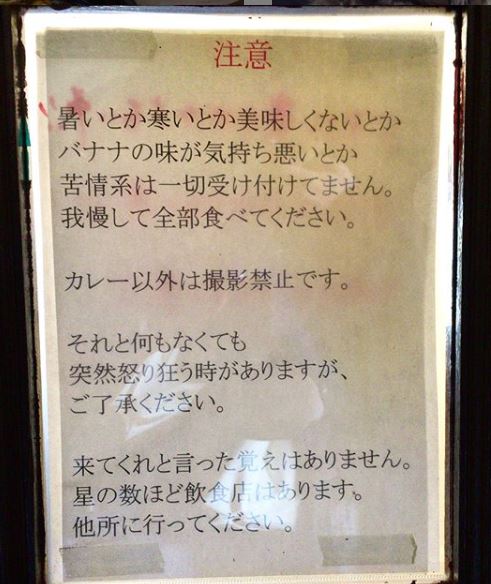 注意
暑いとか寒いとか美味しくないとか
バナナの味が気持ち悪いとか
苦情系は一切受け付けてません。
我慢して全部食べてください。
カレー以外は撮影禁止です。
それと何もなくても
突然怒り狂う時がありますが、
ご了承ください。
来てくれと言った覚えはありません。
星の数ほど飲食店はあります。
他所に行ってください。